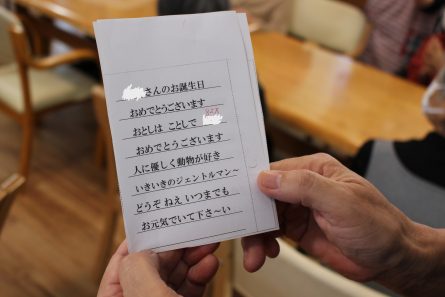 さんのお誕生日
おめでとうございます
おとしは ことしで
おめでとうございます
人に優しく動物が好き
いきいきのジェントルマン~
どうぞ ねえ いつまでも
お元気でいて下さ~い